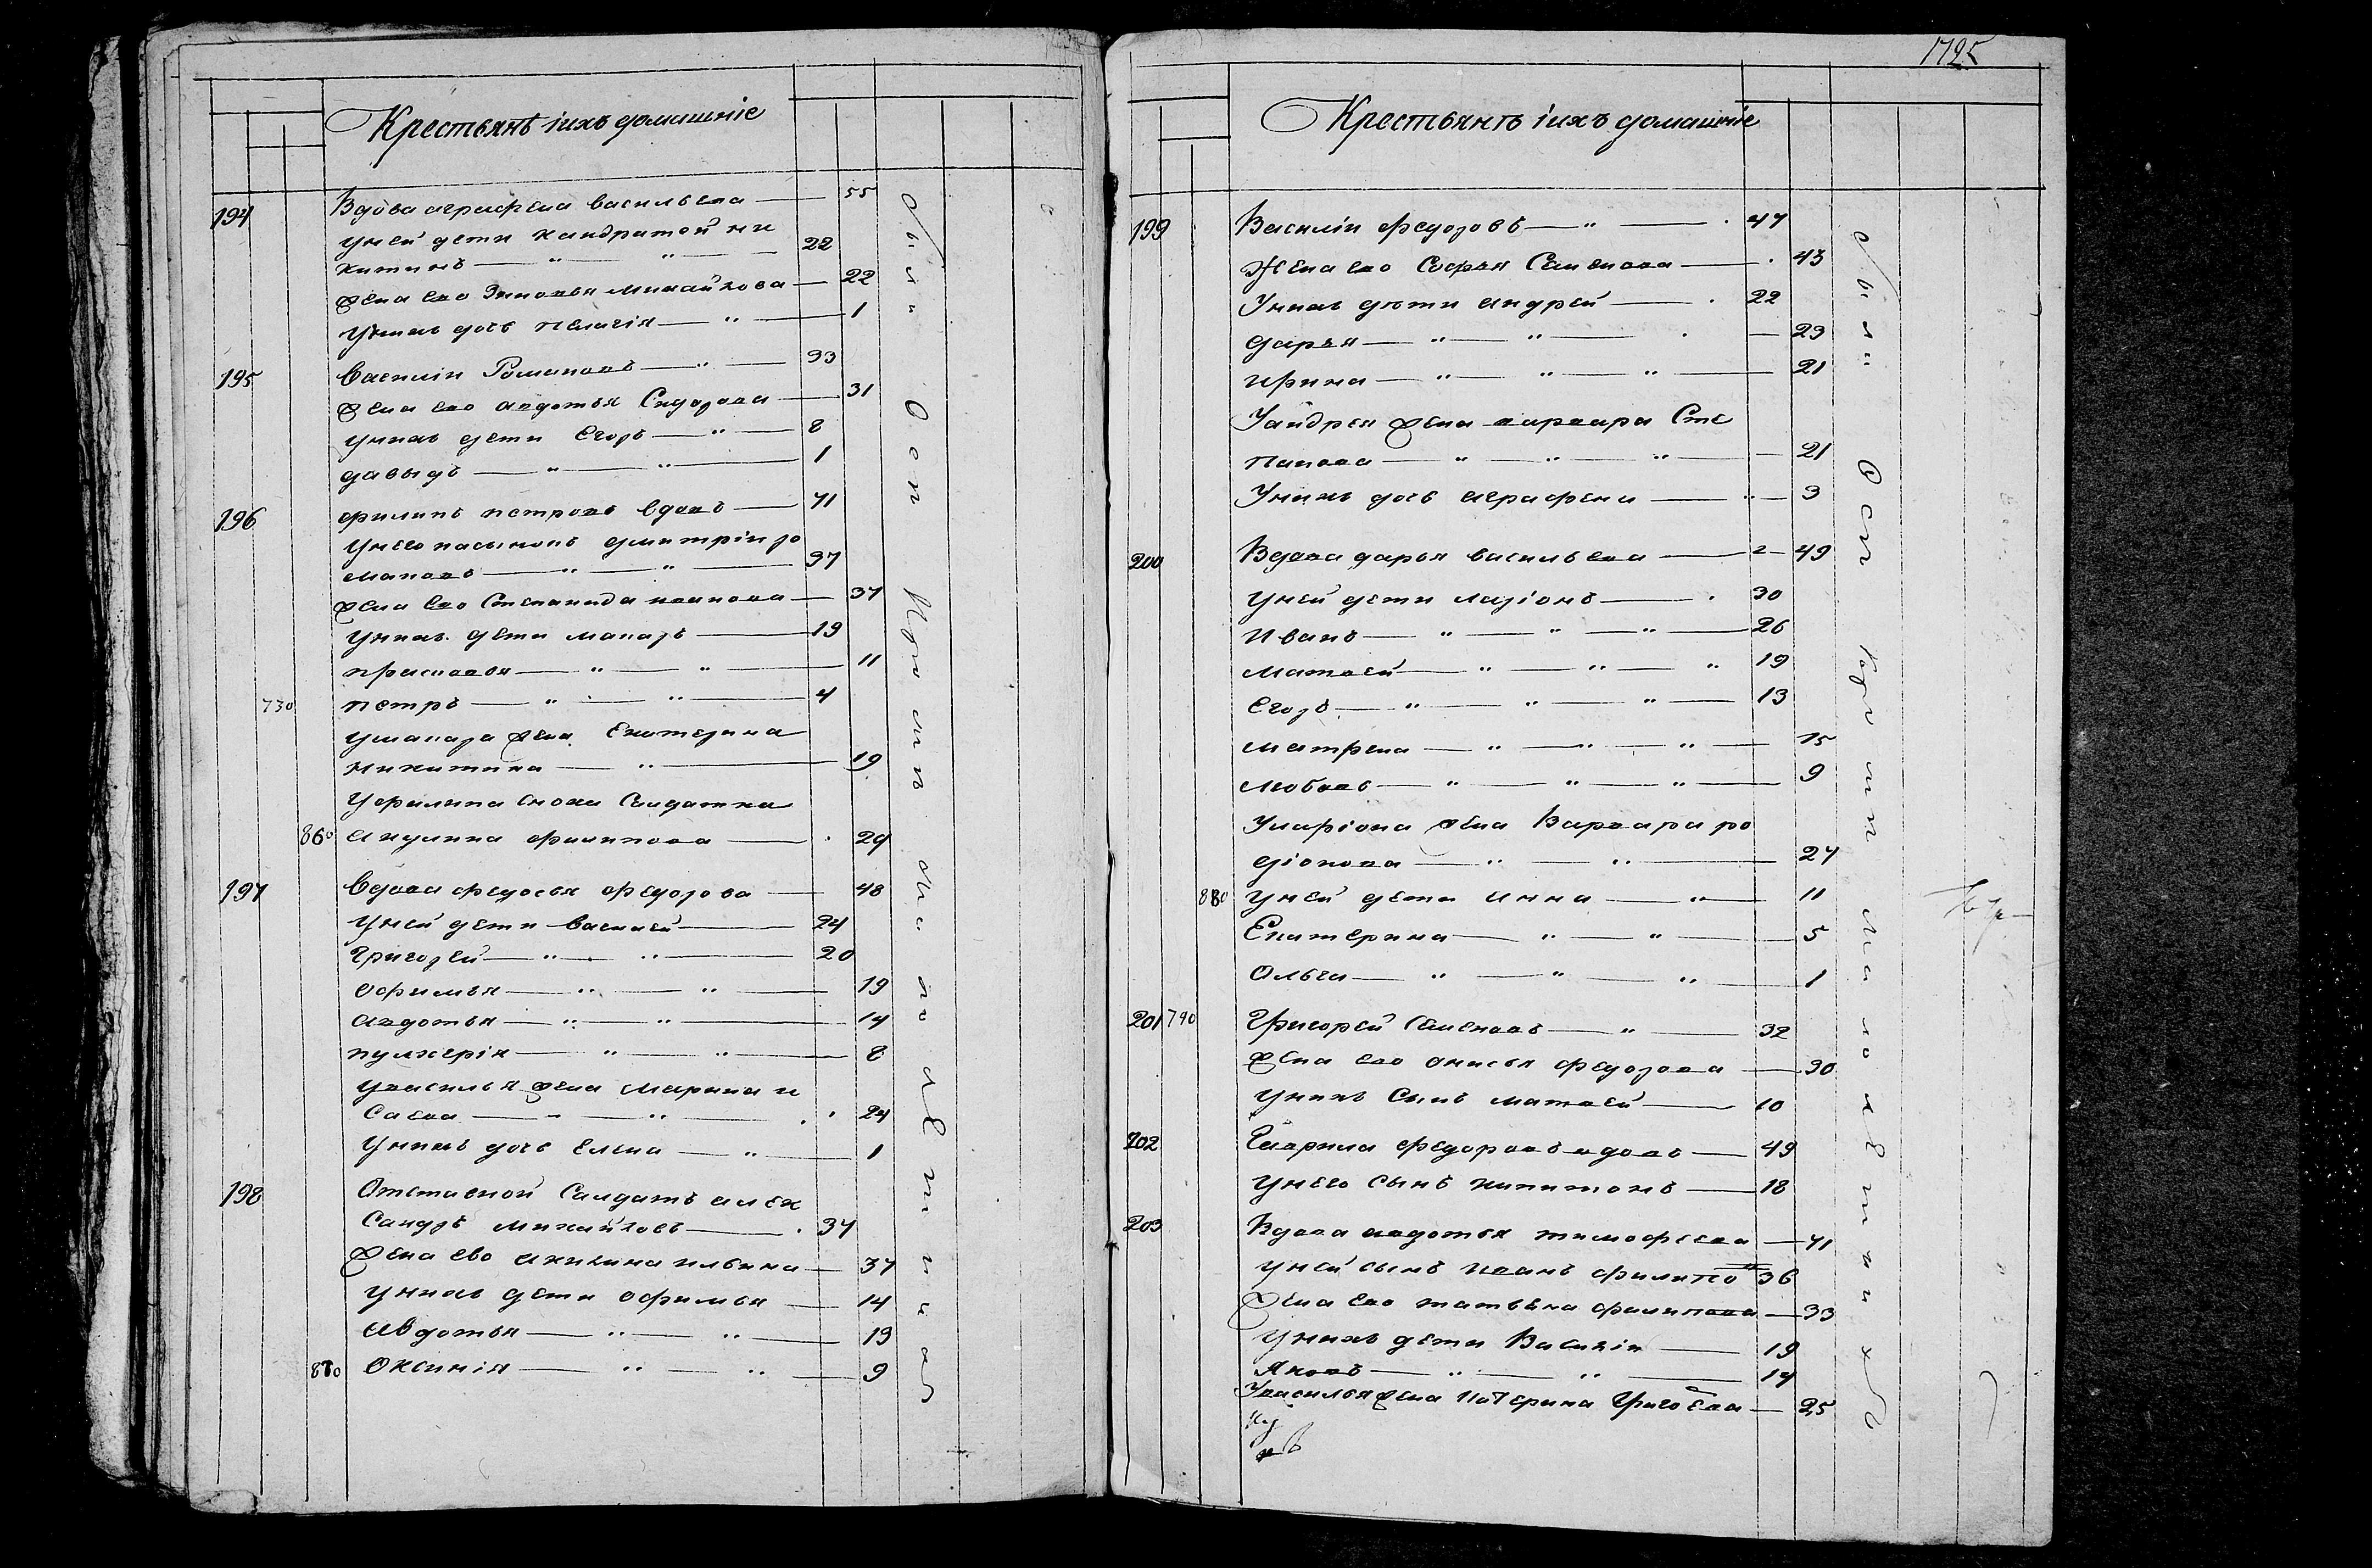 Крестьянѣ іихъ домашніе
194 Вдова аграфена васильева — 55
унеи дети кандратеи ни
китинъ — " — " — 22
жена ево Зиновья михайлова — 22
унихъ дочь пелагія — " — 1
195 Василіи Романовъ — " — 33
жена ево авдотья Сидорова — 31
унихъ дети Егоръ — " — 8
давыдъ — " — " — 1
196 филипъ петровъ вдовъ — 71
унего пасынокъ дмитріи ро
мановъ — " — " — 37
жена ево Степанида иванова — 37
унихъ дети макаръ — 19
прасковья — " — " — 11
730 петръ — " — " — 4
умакара жена Екатерина
никитина — " — 19
уфилипа сноха Салдатка
860 акулина филипова — 29
197 Вдова федосья федорова — 48
уней дети Василей — 24
Григорей — " — " — 20
офимья — " — " — 19
авдотья — " — " — 14
пулхерія — " — " — 8
увасилья жена Марина и
Саева — " — " — 24
унихъ дочь Елена — " — 1
198 Отставной Салдатъ алек
Сандръ михайловъ — 37
жена ево акилина ильина — 37
унихъ дети офимья — 14
авдотья — " — " — 13
870 Оксинія — " — " — 9
Были Все
1725
Крестьянѣ іихъ домашніе
199 Василіи федоровъ — " — 47
Жена ево Софья Семенова — 43
Унихъ дѣти андрей — 22
дарья — " — " — 23
ирина — " — " — " — 21
Уандрея жена варвара Сте
панова — " — " — " — 21
Унихъ дочь аграфена — " — 3
200 Вдова дарья васильева — 49
уней дети ларіонъ — 30
Иванъ — " — " — " — 26
матвей — " — " — " 19
Егоръ — " — " — " — 13
матрена — " — " — " — 15
любовь — " — " — " — 9
Уларіона жена Варвара ро
діонова — " — " — 27
880 уней дети анна — " — 11
Екатерина — " — " — 5
Ольга — " — " — " — 1
201 740 Григорей Семеновъ — " — 32
жена ево анисья федорова — 30
унихъ Сынъ матвей — 10
202 Гаврила федоровъ вдовъ — 49
унего сынъ капитонъ — 18
203 Вдова авдотья тимофеева — 71
уней сынъ иванъ филипо 36
жена ево татьяна филипова — 33
унихъ дети Василіи — 19
Яковъ — " — " — 14
Увасилья жена катерина Григоева — 25